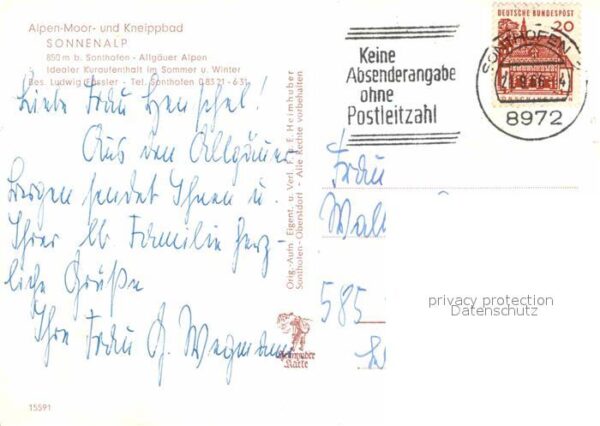 Alpen-Moor- und Kneippbad
SONNENALP
850 m b. Sonthofen - Allgäuer Alpen
Idealer Kuraufenthalt im Sommer u. Winter
Bes. Ludwig Fässler - Tel. Sonthofen 0 83 71 - 6 31
Liebe Frau Henschel!
Aus den Allgäuer
Bergen sendet Ihnen u.
Ihrer lb. Familie herz-
liche Grüße
Ihre Frau G. Wegmann
15591
Orig.-Aufn. Eigent. u. Verl. F. & E. Heimhuber
Sonthofen-Oberstdorf - Alle Rechte vorbehalten
Heimhuber
Karte
Keine
Absenderangabe
ohne
Postleitzahl
DEUTSCHE BUNDESPOST
20
SONTHOFEN
8972
Frau
585
privacy protection
Datenschutz